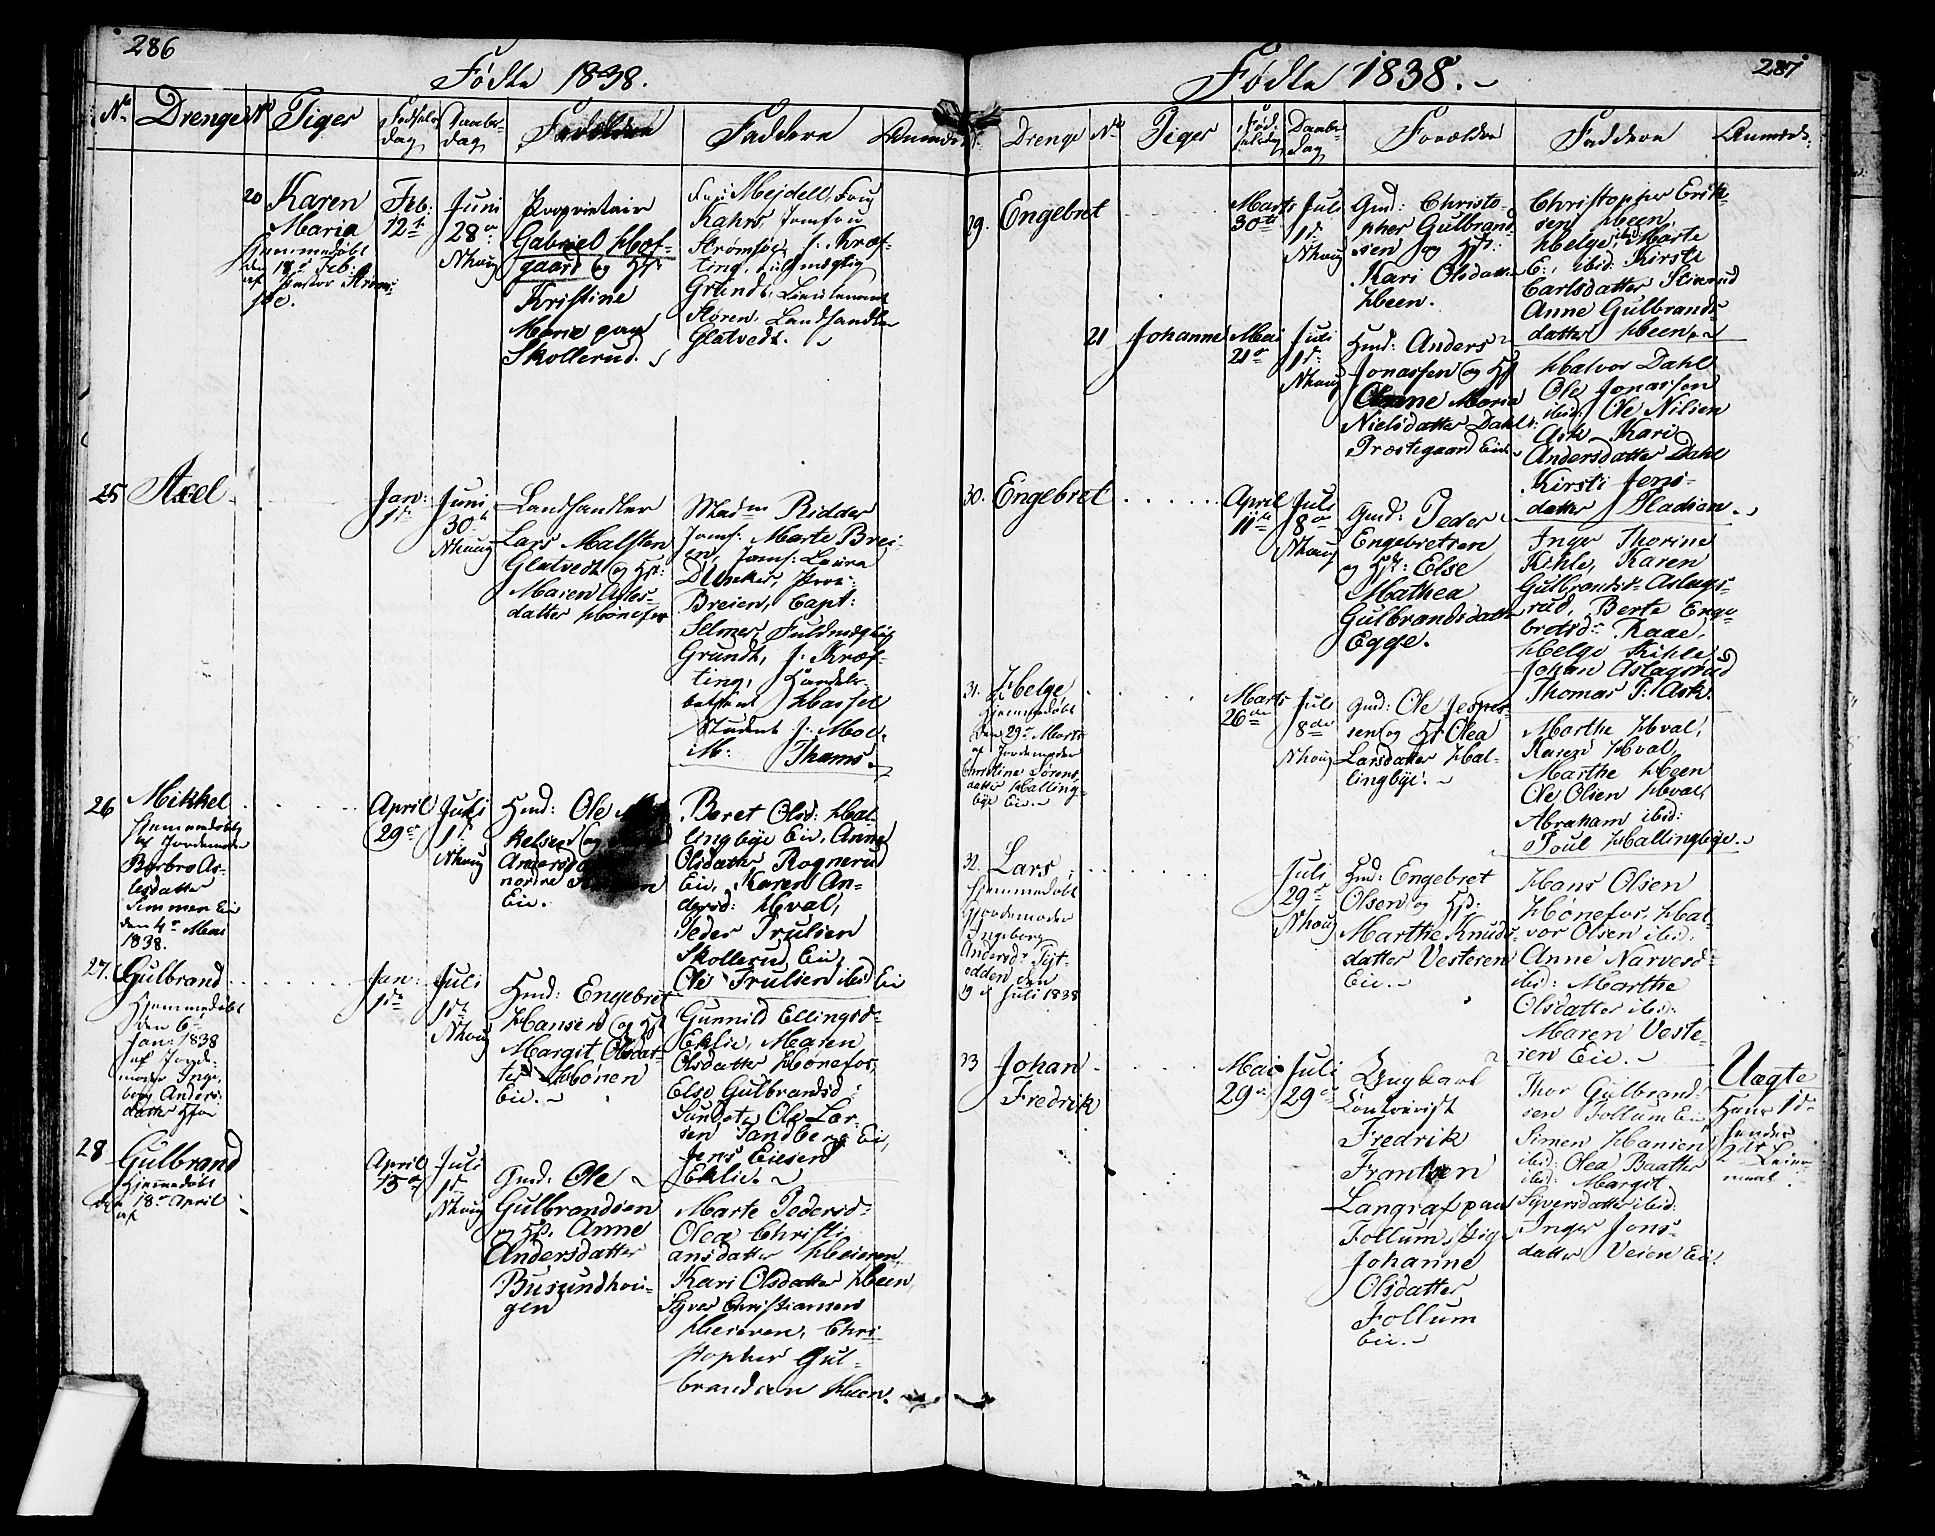 286
Födte 1838.
No
Drenge
No
Piger
Födsels
dag
Daabs-
dag
Forældre
Faddere
Anmærk
20
Karen
Maria
Hjemmedöbt
den 18de Feb:
af Pastor Ström
söe.
Feb:
12te
Juni
28de
Nhoug
Proprietair
Gabriel Hof-
gaard og Hst
Kristine
Marie paa
Skollerud.
Frü Mejdell, Frue
Kahrs, Jomfru
Strömsöe, J. Kræf-
ting, Fuldmægtig
Grundt, Lieutenant
Storen, Landhandler
Glatvedt.
25
Axel
Jan:
1te
Juni
30te
Nhoug
Landhandler
Lars Malsten
Glatvedt og Hst:
Maren Ales-
datter Hönefos
Madm Ridder
Jomf: Marte Brei-
en, Jomf: Laura
Dunker, Prov:
Breien, Capt:
Selmer, Fuldmægtig
Grundt, J. Kræf-
ting, Handels-
betjent Hassel
Student J. Mol.
M: Thams.
26
Mikkel
Hjemmedöbt
af Jordemoder
Barbro As-
lesdatter
Simmen Eie
den 4de Mai
1838.
April
29de
Juli
1te
Nhoug
Hmd: Ole Mik
kelsen og
Andersd
nordre
Eie.
Beret Olsd: Hal-
lingbye Eie, Anne
Olsdatter Rognerud
Eie, Karen An-
dersd: Hval,
Peder Trulsen
Skollerud Eie,
Ole Trulsen ibid Eie
27.
Gulbrand
Hjemmedöbt
den 6te
Jan: 1838
af Jorde-
moder Inge-
borg Anders-
datter Hjör
Jan:
1de
Juli
1te
Nhoug
Hmd: Engebret
Hansen og Hst
Margit Olsdat-
ter Hönen
Eie.
Gunnild Ellingsd-
Eklie, Maren
Olsdatter Hönefos,
Else Gulbrandsd:
Sundet, Ole Lar-
sen Sandberg Eie,
Jens Eiesen
Eklie.
28
Gulbrand
Hjemmedöbt
den 18de April
af
April
15de
Juli
1te
Nhoug
Gmd: Ole
Gulbrandsen
og Hst. Anne
Andersdatter
Busundhou-
gen
Marte Pedersd-
Olea Christi
ansdatter Heieren,
Kari Olsdatter Heen,
Syver Christiansen
Heieren, Chri-
stopher Gul-
brandsen Heen.
Födte 1838.
287
Drenge
No
Piger
Föd-
selsdag
Daabs-
dag
Forældre
Faddere
Anmærk:
29.
Engebret
Marts
30te
Juli
1te
Nhoug
Gmd: Christo-
pher Gulbrand
sen og Hst:
Kari Olsdatter
Heen.
Christopher Erik-
sen Heen,
Helge ibid, Marte
E:, ibid: Kirsti
Carlsdatter Stiverud
Anne Gulbrands
datter Heen
21
Johanne
Mai
21de
Juli
1te
Nhoug
Hmd: Anders
Jonassen og Hst
Anne Maria
Nielsdatter Dahl
Præstegaard Eie
Halvor Dahl
Ole Jonassen
ibid: Ole Nilsen
Ask Kari
Andersdatter Dahl
Kirsti Jens-
datter Fladsen.
30.
Engebret
April
11te
Juli
8de
Nhoug
Gmd: Peder
Engebretsen
og Hst: Else
Mathea
Gulbrandsdatter
Egge.
Inger Thorine
Kihle, Karen
Gulbrandsd: Aslags-
rud, Berte Enge-
bretsd: Raae,
Helge Kihle,
Johan Aslagsrud
Thomas P: Ask.
31.
Helge
Hjemmedöbt
den 29de Marts
af Jordemoder
Christine Sörens
datter Halling-
bye Eie.
Marts
26de
Juli
8de
Nhoug
Gmd: Ole Jesper-
sen og Hst Olea
Larsdatter Hal-
lingbye.
Marthe Hval,
Karen Hval,
Marthe Heen
Ole Olsen Hval,
Abraham ibid:
Poul Hallingbye.
32.
Lars
Hjemmedöbt
Gjordemoder
Ingeborg
Andersd: Tjet-
odden den
19de Juli 1838
Juli
29de
Nhoug
Hmd: Engebret
Olsen og Hst:
Marthe Knuds-
datter Vesteren
Eie.
Hans Olsen
Hönefos, Hal-
vor Olsen ibid.
Anne Narvesd:
ibid: Marthe
Olsdatter ibid:
Maren Veste-
ren Eie.
33
Johan
Fredrik
Mai
29de
Juli
29de
Ungkarl
Fredrik
Frantzen
Langraf paa
Follum, Pige
Johanne
Olsdatter
Follum
Eie.
Thor Gulbrand-
sen Follum Eie
Simen Hansen
ibid: Olea Baatter
ibid: Margit
Syversdatter ibid:
Inger Jons-
datter Veien Eie.
Uægte
Hans 1de
hendes
2det Leier-
maal.